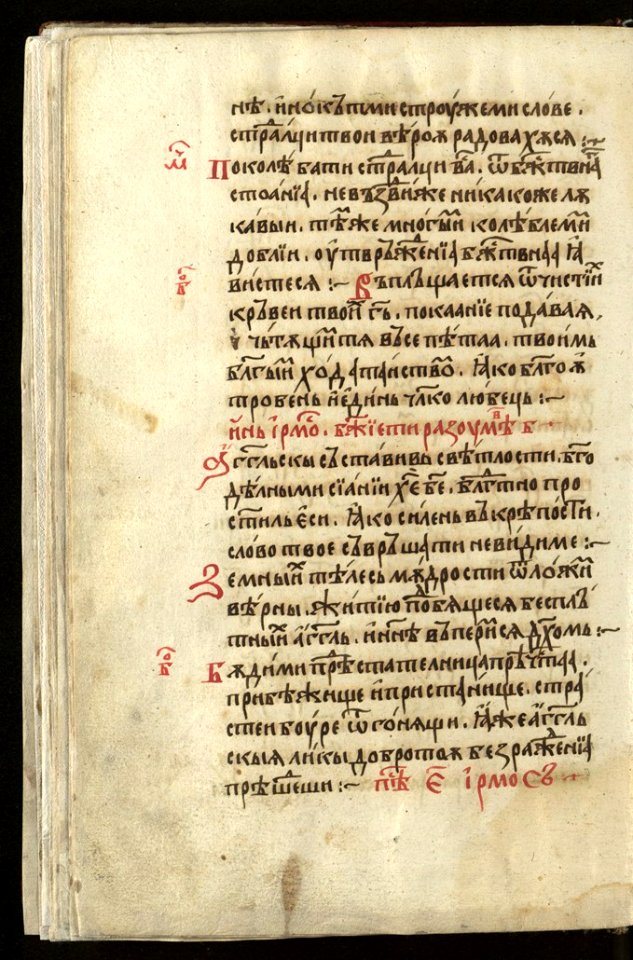 нѣ. и҆нокъпми строуѫеми слове.
стрⷭ҇алци твои вѣроѫ радовахѫсѧ :~
м҃ Поколѣбати стрⷭ҇алци ва. ѿ бжⷭ҇твнаⷢ҇
стоанїа. не възⷣвиже никакоже лѫ
кавыи. тѣⷨже многыⷨи колѣблемїи
доблїи. оутвръженїа бжⷭ҇твнаа ꙗ
вистесѧ :~ Въплъщаетсѧ ѿ чистїиⷯ
кръвеи твоиⷯ гь. покаанїе подаваѧ,
чьтѫщїиⷨ тѧ въсепѣтаа. твоимь
блгⷢ҇ыⷨи ходатаиствоⷨ. ꙗко блг҃оѫ
тробень и҆ единь чл҃колюбець :~
и҆нь і҆рмоⷭ. бж҃їе ти разоумѣⷡ б
Агг҃льскы съставивь свѣтлости, бг҃о
дѣлными сїанїи хе҃ бе҃. блгⷣ҇тно про
стиль еси. ꙗко силень въ крѣпости.
слово твое съвръшати невидиме :~
Земныиⷯ тѣлесь мѫдрости ѿложиⷨ
вѣрны. житїю поⷣбѧщесѧ бесплъ
тныиⷯ агг҃ль. и҆ нн҃ѣ въперимсѧ дх҃омь :~
бо҃ Бѫди ми прⷣѣстателница прѣчⷭ҇таа.
прибѣжище и҆ пристанище. стра
стеи боуре ѿгонѧщи. ꙗже агг҃ль
скыѧ ликы добротоѫ безражⷣенїа
прѣшеⷣши :~ пѣⷭ е҃ і҆рмосъ